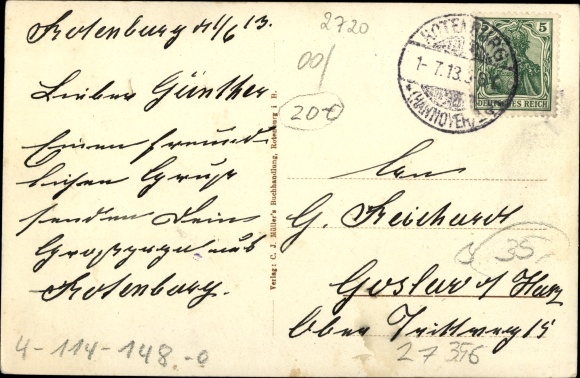 Rotenburg d 1/6 13.
Lieber Günther
Einen freund-
lichen Gruß
senden Dein
Großpapa aus
Rotenburg.
2720
00/
20€
4-114-148.-0
Verlag: C. J. Müller's Buchhandlung, Rotenburg i. H.
ROTENBURG
1- 7.13.
(HANNOVER)
5
DEUTSCHES REICH
An
G. Reichardt
35.-
Goslar a/ Harz
Ober Triftweg 15
27356